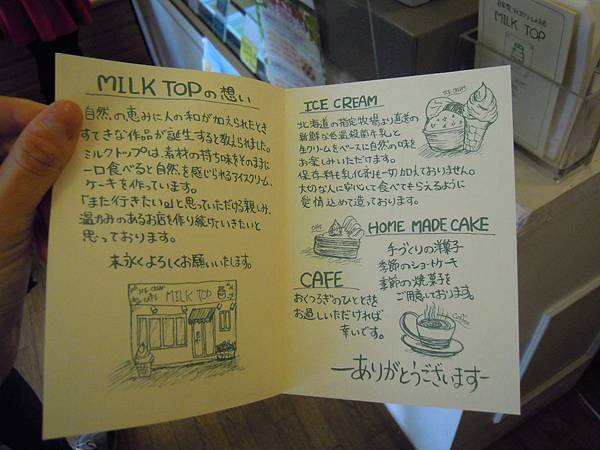 MILK TOPの想い
自然の恵みに人の和が加えられたとき
すてきな作品が誕生すると教えられました。
ミルクトップは、素材の持ち味をそのままに
一口食べると自然を感じられるアイスクリーム、
ケーキを作っています。
「また行きたい。」と思っていただける親しみ、
温かみのあるお店を作り続けていきたいと
思っております。
末永くよろしくお願いいたします。
ICE CREAM
CAFE
MILK TOP
ICE CREAM
北海道の指定牧場より直送の
新鮮な低温殺菌牛乳と
生クリームをベースに自然の味を
お楽しみいただけます。
保存料、乳化剤は一切加えておりません。
大切な人に安心して食べてもらえるように
愛情込めて造っております。
ICE CREAM
HOME MADE CAKE
手づくりの洋菓子
季節のショートケーキ
季節の焼菓子を
ご用意しております。
CAKE
CAFE
おくつろぎのひとときを
お過しいただければ
幸いです。
ーありがとうございますー
MILK TOP